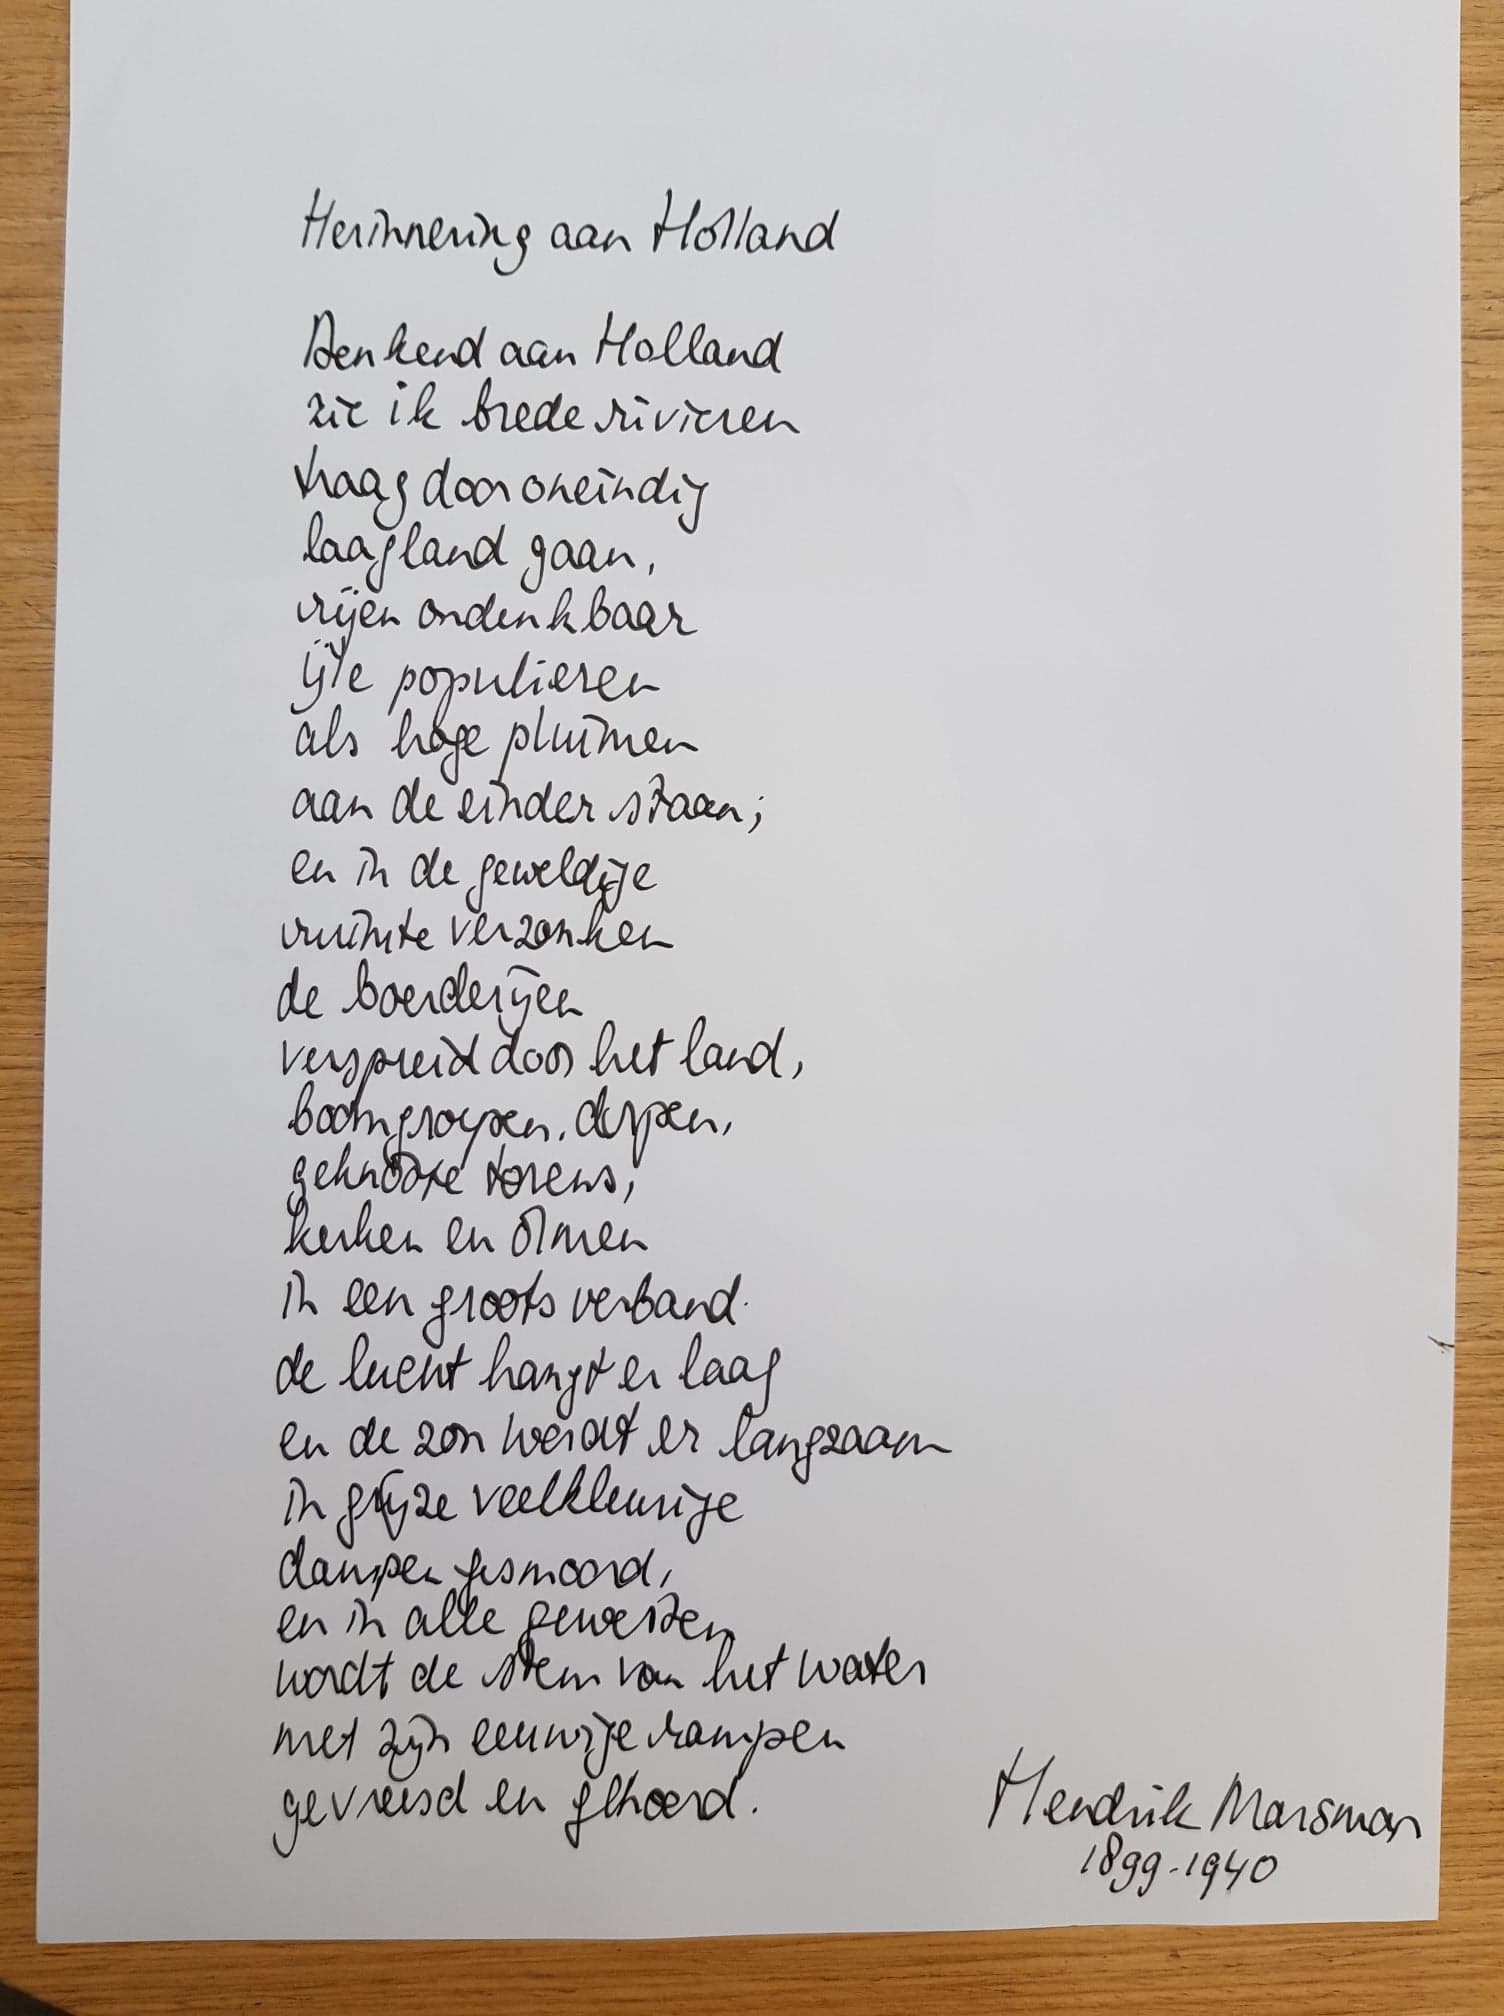 Herinnering aan Holland
Denkend aan Holland
zie ik brede rivieren
traag door oneindig
laagland gaan,
rijen ondenkbaar
ijle populieren
als hoge pluimen
aan de einder staan;
en in de geweldige
ruimte verzonken
de boerderijen
verspreid door het land,
boomgroepen, dorpen,
geknotte torens,
kerken en olmen
in een groots verband.
de lucht hangt er laag
en de zon wordt er langzaam
in grijze veelkleurige
dampen gesmoord,
en in alle gewesten
wordt de stem van het water
met zijn eeuwige rampen
gevreesd en gehoord.
Hendrik Marsman
1899-1940